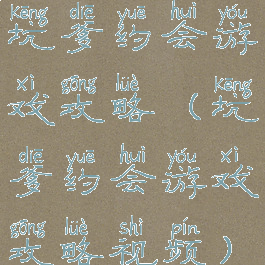 kēng diē yuē huì yóu
坑爹约会游
xì gōng lüè kēng
戏攻略（坑
diē yuē huì yóu xì
爹约会游戏
gōng lüè shì pín
攻略视频）